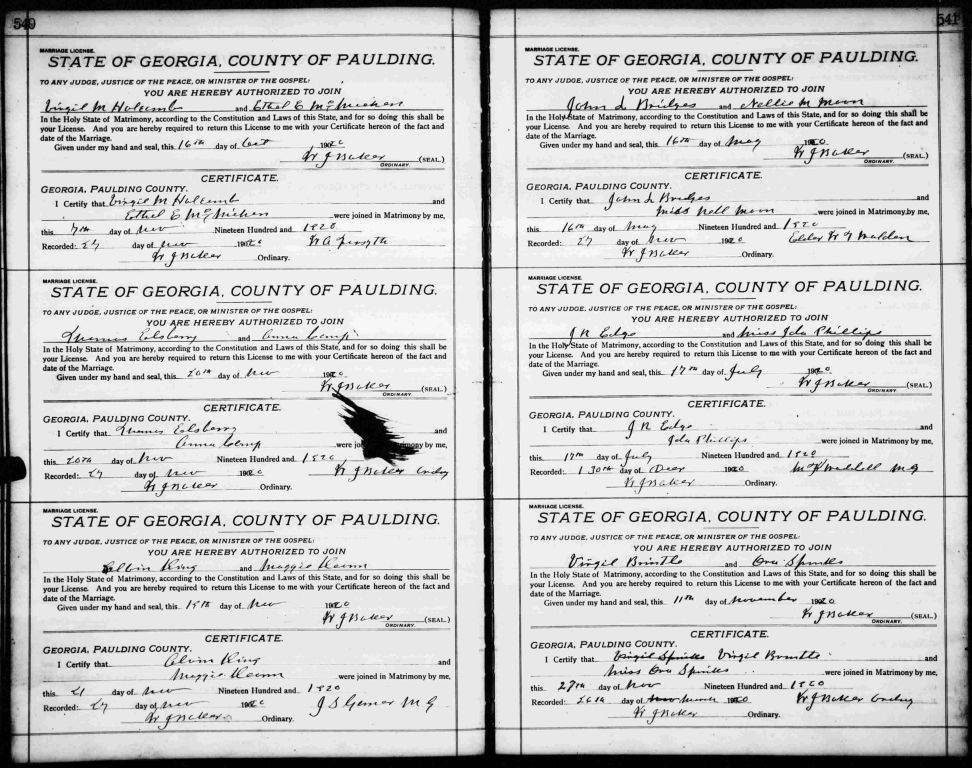 540
MARRIAGE LICENSE.
STATE OF GEORGIA, COUNTY OF PAULDING.
TO ANY JUDGE, JUSTICE OF THE PEACE, OR MINISTER OF THE GOSPEL:
YOU ARE HEREBY AUTHORIZED TO JOIN
Virgil M Holcomb and Ethel E McMichen
In the Holy State of Matrimony, according to the Constitution and Laws of this State, and for so doing this shall be
your License. And you are hereby required to return this License to me with your Certificate hereon of the fact and
date of the Marriage.
Given under my hand and seal, this 16th day of Oct 1920
W J Baker (SEAL.)
ORDINARY.
CERTIFICATE.
GEORGIA, PAULDING COUNTY.
I Certify that Virgil M Holcomb and
Ethel E McMichen were joined in Matrimony by me,
this 7th day of Nov Nineteen Hundred and 1920
Recorded: 27 day of Nov 1920 W A Forsyth
W J Baker Ordinary.
MARRIAGE LICENSE.
STATE OF GEORGIA, COUNTY OF PAULDING.
TO ANY JUDGE, JUSTICE OF THE PEACE, OR MINISTER OF THE GOSPEL:
YOU ARE HEREBY AUTHORIZED TO JOIN
Elsberry and Anna Camp
In the Holy State of Matrimony, according to the Constitution and Laws of this State, and for so doing this shall be
your License. And you are hereby required to return this License to me with your Certificate hereon of the fact and
date of the Marriage.
Given under my hand and seal, this 20th day of Nov 1920
W J Baker (SEAL.)
ORDINARY.
CERTIFICATE.
GEORGIA, PAULDING COUNTY.
I Certify that Elsberry and
Anna Camp were joined in Matrimony by me,
this 20th day of Nov Nineteen Hundred and 1920
Recorded: 27 day of Nov 1920 W J Baker Ordny
W J Baker Ordinary.
MARRIAGE LICENSE.
STATE OF GEORGIA, COUNTY OF PAULDING.
TO ANY JUDGE, JUSTICE OF THE PEACE, OR MINISTER OF THE GOSPEL:
YOU ARE HEREBY AUTHORIZED TO JOIN
King and Maggie
In the Holy State of Matrimony, according to the Constitution and Laws of this State, and for so doing this shall be
your License. And you are hereby required to return this License to me with your Certificate hereon of the fact and
date of the Marriage.
Given under my hand and seal, this 15th day of Nov 1920
W J Baker (SEAL.)
ORDINARY.
CERTIFICATE.
GEORGIA, PAULDING COUNTY.
I Certify that Alvin King and
Maggie were joined in Matrimony by me,
this 21 day of Nov Nineteen Hundred and 1920
Recorded: 27 day of Nov 1920 J S M G
W J Baker Ordinary.
541
MARRIAGE LICENSE.
STATE OF GEORGIA, COUNTY OF PAULDING.
TO ANY JUDGE, JUSTICE OF THE PEACE, OR MINISTER OF THE GOSPEL:
YOU ARE HEREBY AUTHORIZED TO JOIN
John L Bridges and Nellie M Moon
In the Holy State of Matrimony, according to the Constitution and Laws of this State, and for so doing this shall be
your License. And you are hereby required to return this License to me with your Certificate hereon of the fact and
date of the Marriage.
Given under my hand and seal, this 16th day of May 1920
W J Baker (SEAL.)
ORDINARY.
CERTIFICATE.
GEORGIA, PAULDING COUNTY.
I Certify that John L Bridges and
Miss Nell Moon were joined in Matrimony by me,
this 16th day of May Nineteen Hundred and 1920
Recorded: 27 day of Nov 1920 Elder W
W J Baker Ordinary.
MARRIAGE LICENSE.
STATE OF GEORGIA, COUNTY OF PAULDING.
TO ANY JUDGE, JUSTICE OF THE PEACE, OR MINISTER OF THE GOSPEL:
YOU ARE HEREBY AUTHORIZED TO JOIN
J R Edge and Miss Ida Phillips
In the Holy State of Matrimony, according to the Constitution and Laws of this State, and for so doing this shall be
your License. And you are hereby required to return this License to me with your Certificate hereon of the fact and
date of the Marriage.
Given under my hand and seal, this 17th day of July 1920
W J Baker (SEAL.)
ORDINARY.
CERTIFICATE.
GEORGIA, PAULDING COUNTY.
I Certify that J R Edge and
Ida Phillips were joined in Matrimony by me,
this 17th day of July Nineteen Hundred and 1920
Recorded: 30th day of 1920 M G
W J Baker Ordinary.
MARRIAGE LICENSE.
STATE OF GEORGIA, COUNTY OF PAULDING.
TO ANY JUDGE, JUSTICE OF THE PEACE, OR MINISTER OF THE GOSPEL:
YOU ARE HEREBY AUTHORIZED TO JOIN
Virgil and Ora Spinks
In the Holy State of Matrimony, according to the Constitution and Laws of this State, and for so doing this shall be
your License. And you are hereby required to return this License to me with your Certificate hereon of the fact and
date of the Marriage.
Given under my hand and seal, this 11th day of November 1920
W J Baker (SEAL.)
ORDINARY.
CERTIFICATE.
GEORGIA, PAULDING COUNTY.
I Certify that Virgil Spinks Virgil and
Miss Ora Spinks were joined in Matrimony by me,
this 27th day of Nov Nineteen Hundred and 1920
Recorded: day of 1920 W J Baker Ordny
W J Baker Ordinary.